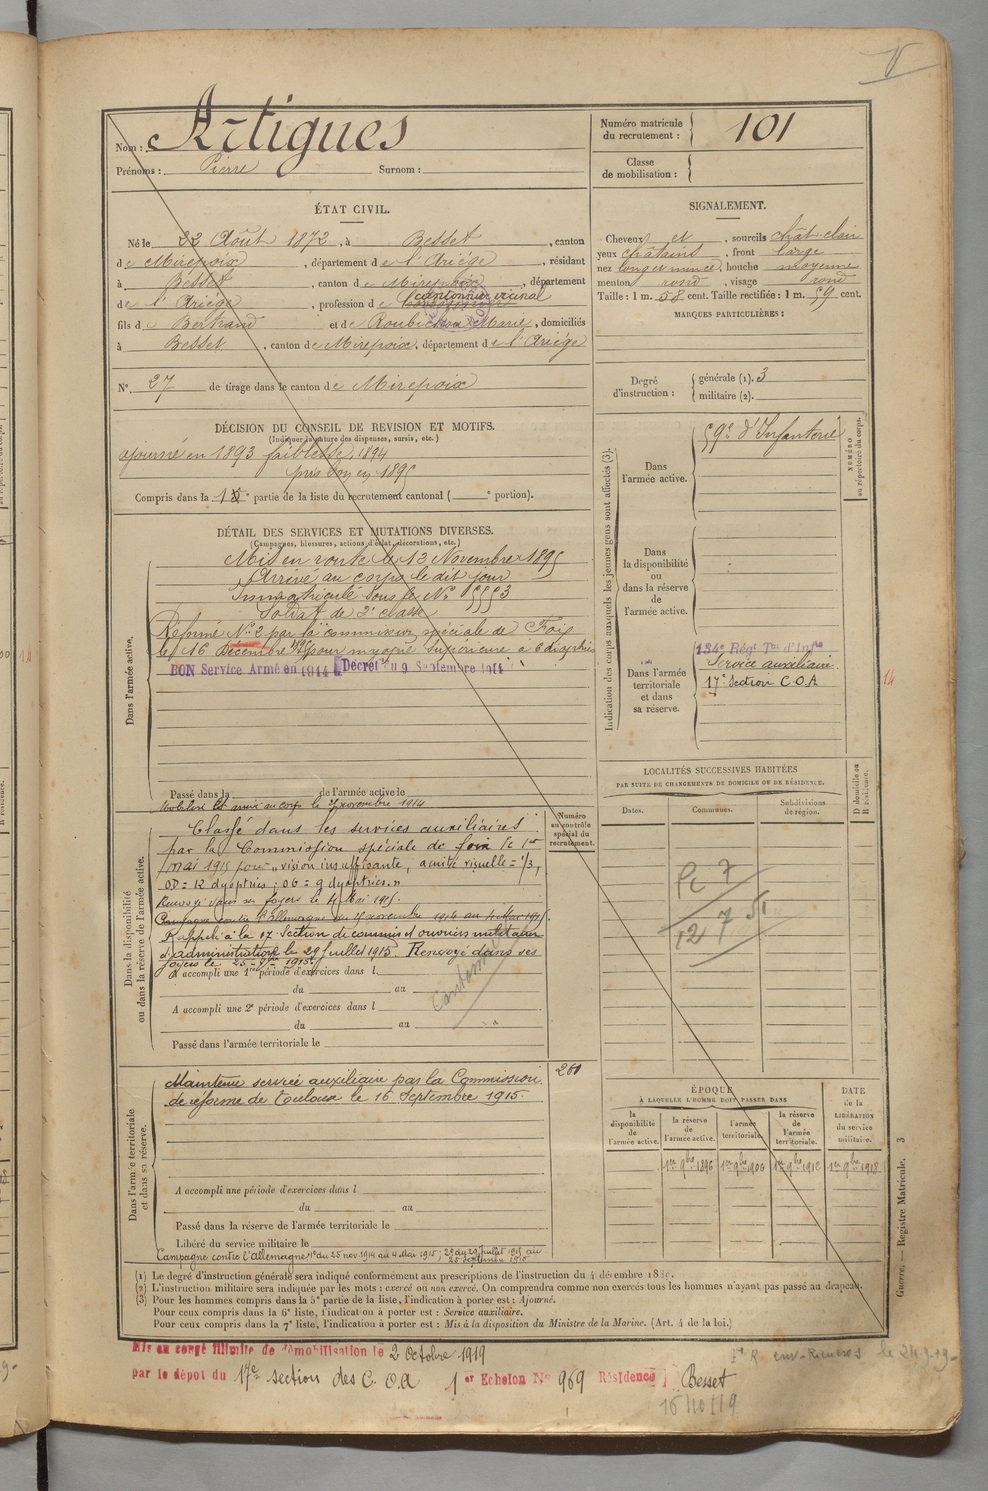 Nom : Artigues
Prénoms : Pierre Surnom :
Numéro matricule du recrutement : 101
Classe de mobilisation :
ÉTAT CIVIL.
Né le 22 Août 1872, à Besset, canton
de Mirepoix, département de l'Ariége, résidant
à Besset, canton de Mirepoix, département
de l'Ariége, profession de cantonnier vicinal
fils de Bertrand et de Roubichou Marie, domiciliés
à Besset, canton de Mirepoix, département de l'Ariége
N° 27 de tirage dans le canton de Mirepoix
SIGNALEMENT.
Cheveux et, sourcils chât clair
yeux châtains, front large
nez long et mince, bouche moyenne
menton rond, visage rond
Taille : 1 m. 58 cent. Taille rectifiée : 1 m. 59 cent.
MARQUES PARTICULIÈRES :
Degré d'instruction : générale (1). 3
militaire (2).
DÉCISION DU CONSEIL DE REVISION ET MOTIFS.
(Indiquer la nature des dispenses, sursis, etc.)
ajourné en 1893 faiblesse, 1894
pris bon en 1895
Compris dans la 1e partie de la liste du recrutement cantonal ( e portion).
DÉTAIL DES SERVICES ET MUTATIONS DIVERSES.
(Campagnes, blessures, actions d'éclat, décorations, etc.)
Dans l'armée active.
Mis en route le 13 Novembre 1895
Arrivé au corps le dit jour
Immatriculé sous le N° 5553
Soldat de 2e classe
Réformé N° 2 par la commission spéciale de Foix
le 16 Décembre 1895 pour myopie supérieure à 6 dioptries
BON Service Armé en 1914 Décret du 9 Septembre 1914
Passé dans la de l'armée active le
Indication des corps auxquels les jeunes gens sont affectés (3).
NUMÉRO au répertoire du corps.
Dans l'armée active.
59e d'Infanterie
Dans la disponibilité ou dans la réserve de l'armée active.
Dans l'armée territoriale et dans sa réserve.
134e Régt Tal d'Infie
Service auxiliaire
17e Section C.O.A
14
LOCALITÉS SUCCESSIVES HABITÉES
PAR SUITE DE CHANGEMENTS DE DOMICILE OU DE RÉSIDENCE.
Dates. Communes. Subdivisions de région. D domicile ou R résidence.
Dans la disponibilité ou dans la réserve de l'armée active.
Numéro au contrôle spécial du recrutement.
Mobilisé et arrivé au corps le 25 novembre 1914
Classé dans les services auxiliaires
par la Commission spéciale de Foix le 1er
mai 1915 pour „ vision insuffisante, acuité visuelle = 1/3,
OD = 12 dyoptries ; OG = 9 dyoptries. „
Renvoyé dans ses foyers le 4 Mai 1915.
Campagne contre l'Allemagne du 25 novembre 1914 au 4 Mai 1915.
Rappelé à la 17e Section de commis et ouvriers militaires
d'administration le 29 Juillet 1915. Renvoyé dans ses
foyers le 25 - 9bre 1915
A accompli une 1re période d'exercices dans l
du au
A accompli une 2e période d'exercices dans l
du au
Passé dans l'armée territoriale le
Dans l'armée territoriale et dans sa réserve.
Maintenu service auxiliaire par la Commission 261
de réforme de Toulouse le 16 Septembre 1915.
A accompli une période d'exercices dans l
du au
Passé dans la réserve de l'armée territoriale le
Libéré du service militaire le
Campagne contre l'Allemagne 1° du 25 nov. 1914 au 4 Mai 1915 ; 2° du 29 juillet 1915 au
25 Septembre 1915
ÉPOQUE
À LAQUELLE L'HOMME DOIT PASSER DANS
la disponibilité de l'armée active.
la réserve de l'armée active.
l'armée territoriale.
la réserve de l'armée territoriale.
DATE de la LIBÉRATION du service militaire.
1er 9bre 1896 1er 9bre 1906 1er 9bre 1912 1er 9bre 1918
(1) Le degré d'instruction générale sera indiqué conformément aux prescriptions de l'instruction du 4 décembre 1889.
(2) L'instruction militaire sera indiquée par les mots : exercé ou non exercé. On comprendra comme non exercés tous les hommes n'ayant pas passé au drapeau.
(3) Pour les hommes compris dans la 5e partie de la liste, l'indication à porter est : Ajourné.
Pour ceux compris dans la 6e liste, l'indication à porter est : Service auxiliaire.
Pour ceux compris dans la 7e liste, l'indication à porter est : Mis à la disposition du Ministre de la Marine. (Art. 4 de la loi.)
Guerre. — Registre Matricule. 3
Mis en congé illimité de démobilisation le 2 Octobre 1919
par le dépôt du 17e section des C.O.A 1er Echelon N° 969 Résidence Besset
16/10/19